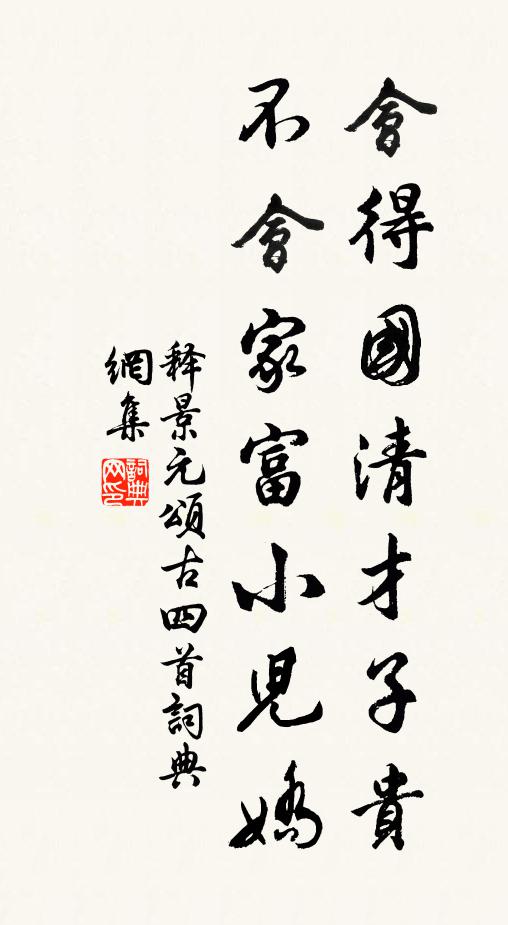 會得國清才子貴
不會家富小兒嬌
释景元頌古四首詞典
網集
詞典
网印